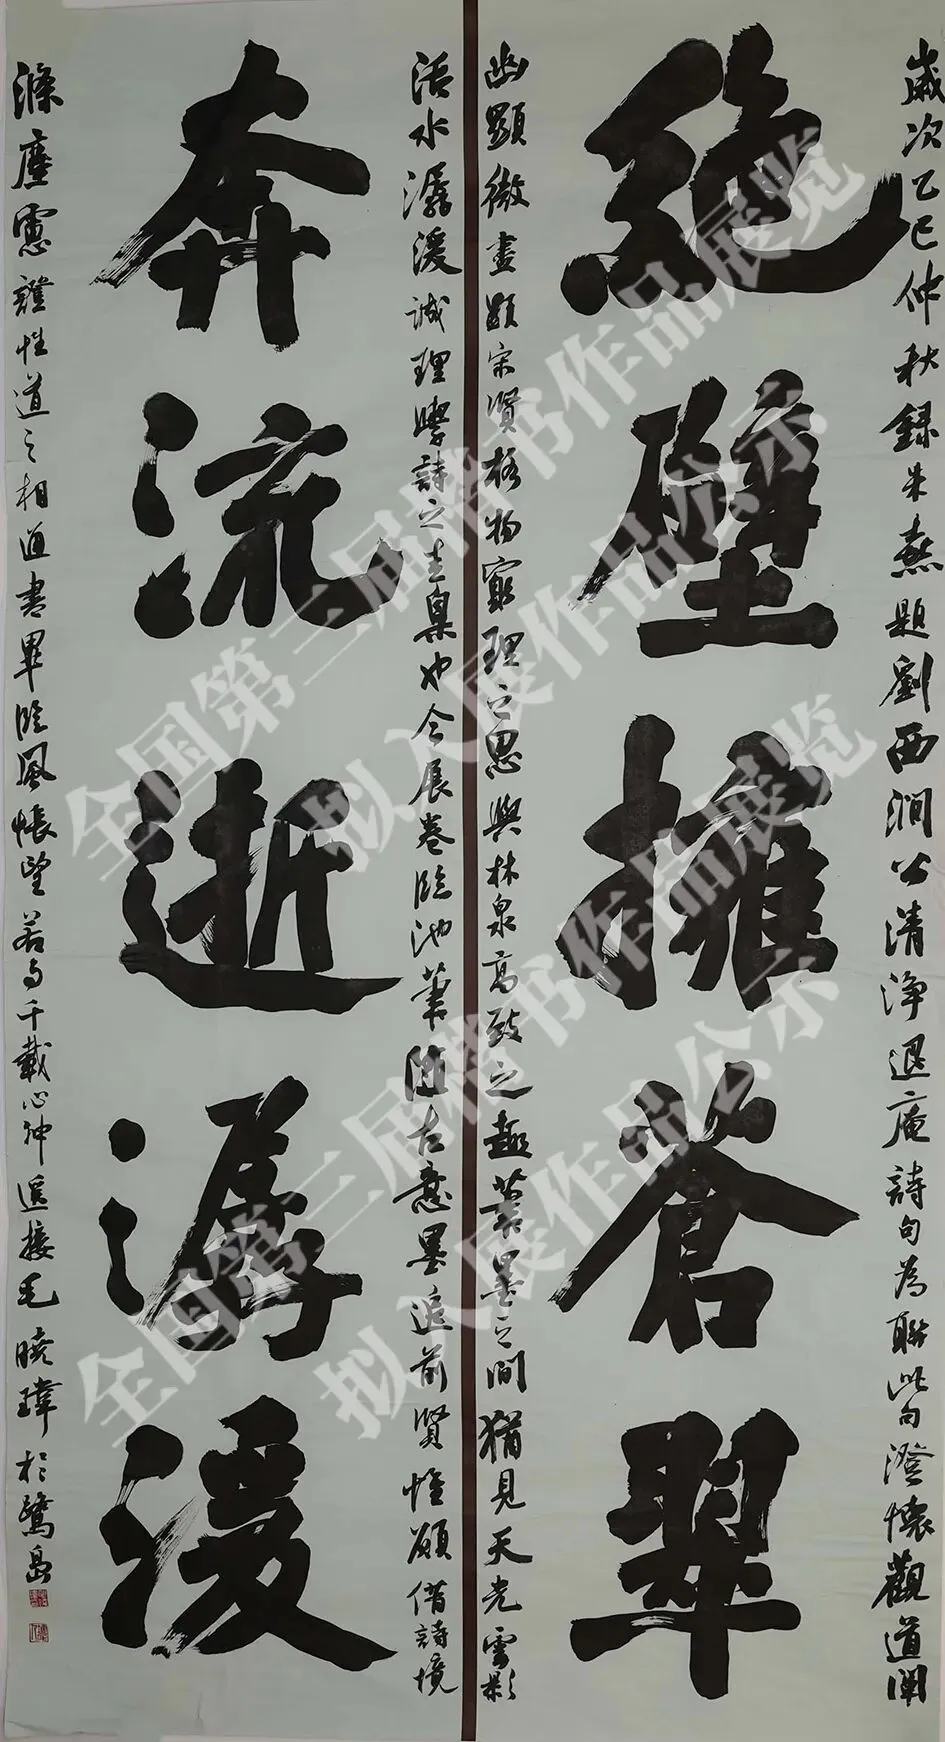 歲次乙巳仲秋録朱熹題劉西澗公清淨退庵詩句為聯此句澄懷觀道闡
絶壁擁蒼翠
幽顯微盡顯宋賢格物窮理之思與林泉高致之趣叢墨之间猶見天光雲影
活水潺湲誠理學詩之圭臬也今展卷臨池筆隨古意墨追前賢惟願借詩境
奔流逝潺湲
滌塵慮證性道之相通書畢臨風悵望若与千載心神遥接毛曉瑋於鷺島
全国第三届楷书作品展览
拟入展作品公示
全国第三届楷书作品展览
拟入展作品公示